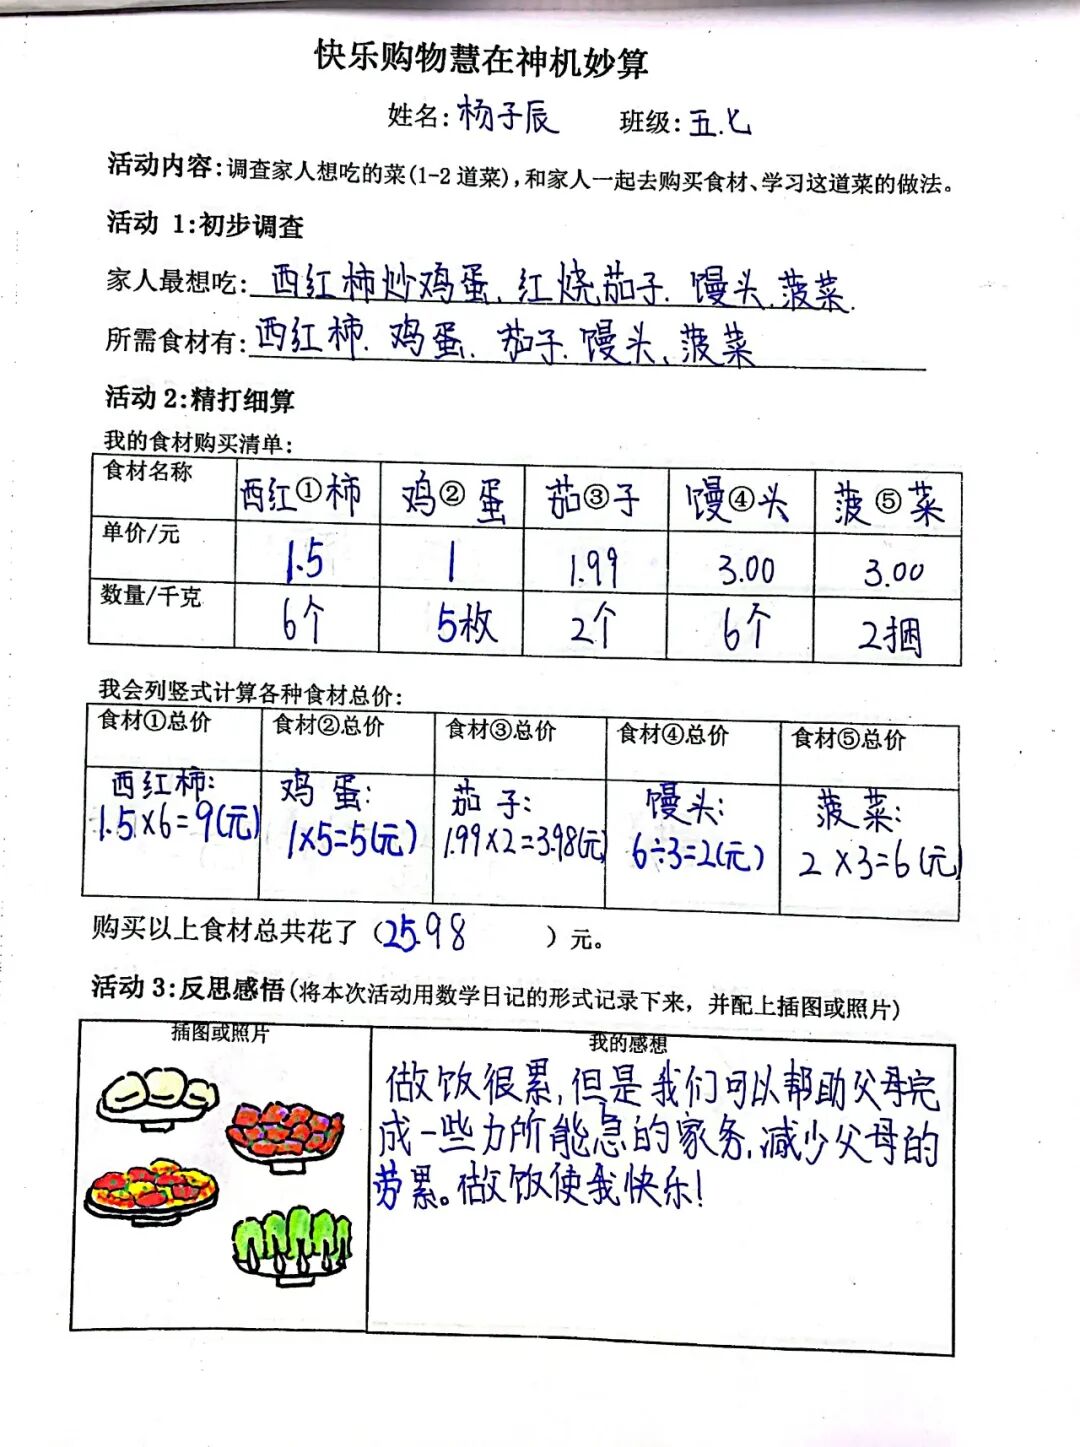 快乐购物慧在神机妙算
姓名:杨子辰 班级:五.七
活动内容:调查家人想吃的菜(1-2道菜),和家人一起去购买食材、学习这道菜的做法。
活动 1:初步调查
家人最想吃:西红柿炒鸡蛋、红烧茄子、馒头、菠菜.
所需食材有:西红柿、鸡蛋、茄子、馒头、菠菜
活动2:精打细算
我的食材购买清单:
食材名称 西红①柿 鸡②蛋 茄③子 馒④头 菠⑤菜
单价/元 1.5 1 1.99 3.00 3.00
数量/千克 6个 5枚 2个 6个 2捆
我会列竖式计算各种食材总价:
食材①总价 食材②总价 食材③总价 食材④总价 食材⑤总价
西红柿: 鸡蛋: 茄子: 馒头: 菠菜:
1.5×6=9(元) 1×5=5(元) 1.99×2=3.98(元) 6÷3=2(元) 2×3=6(元)
购买以上食材总共花了(25.98)元。
活动3:反思感悟(将本次活动用数学日记的形式记录下来，并配上插图或照片)
插图或照片 我的感想
做饭很累,但是我们可以帮助父母完
成一些力所能急的家务,减少父母的
劳累。做饭使我快乐!